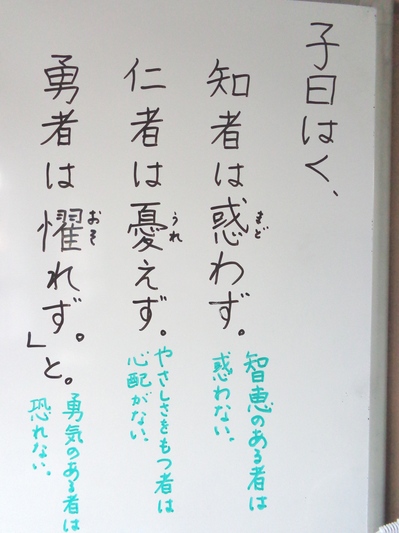 子曰はく、
知者は惑わず。
まど
智恵のある者は
惑わない。
仁者は憂えず。
うれ
やさしさをもつ者は
心配がない。
勇者は懼れず。」と。
おそ
勇気のある者は
恐れない。